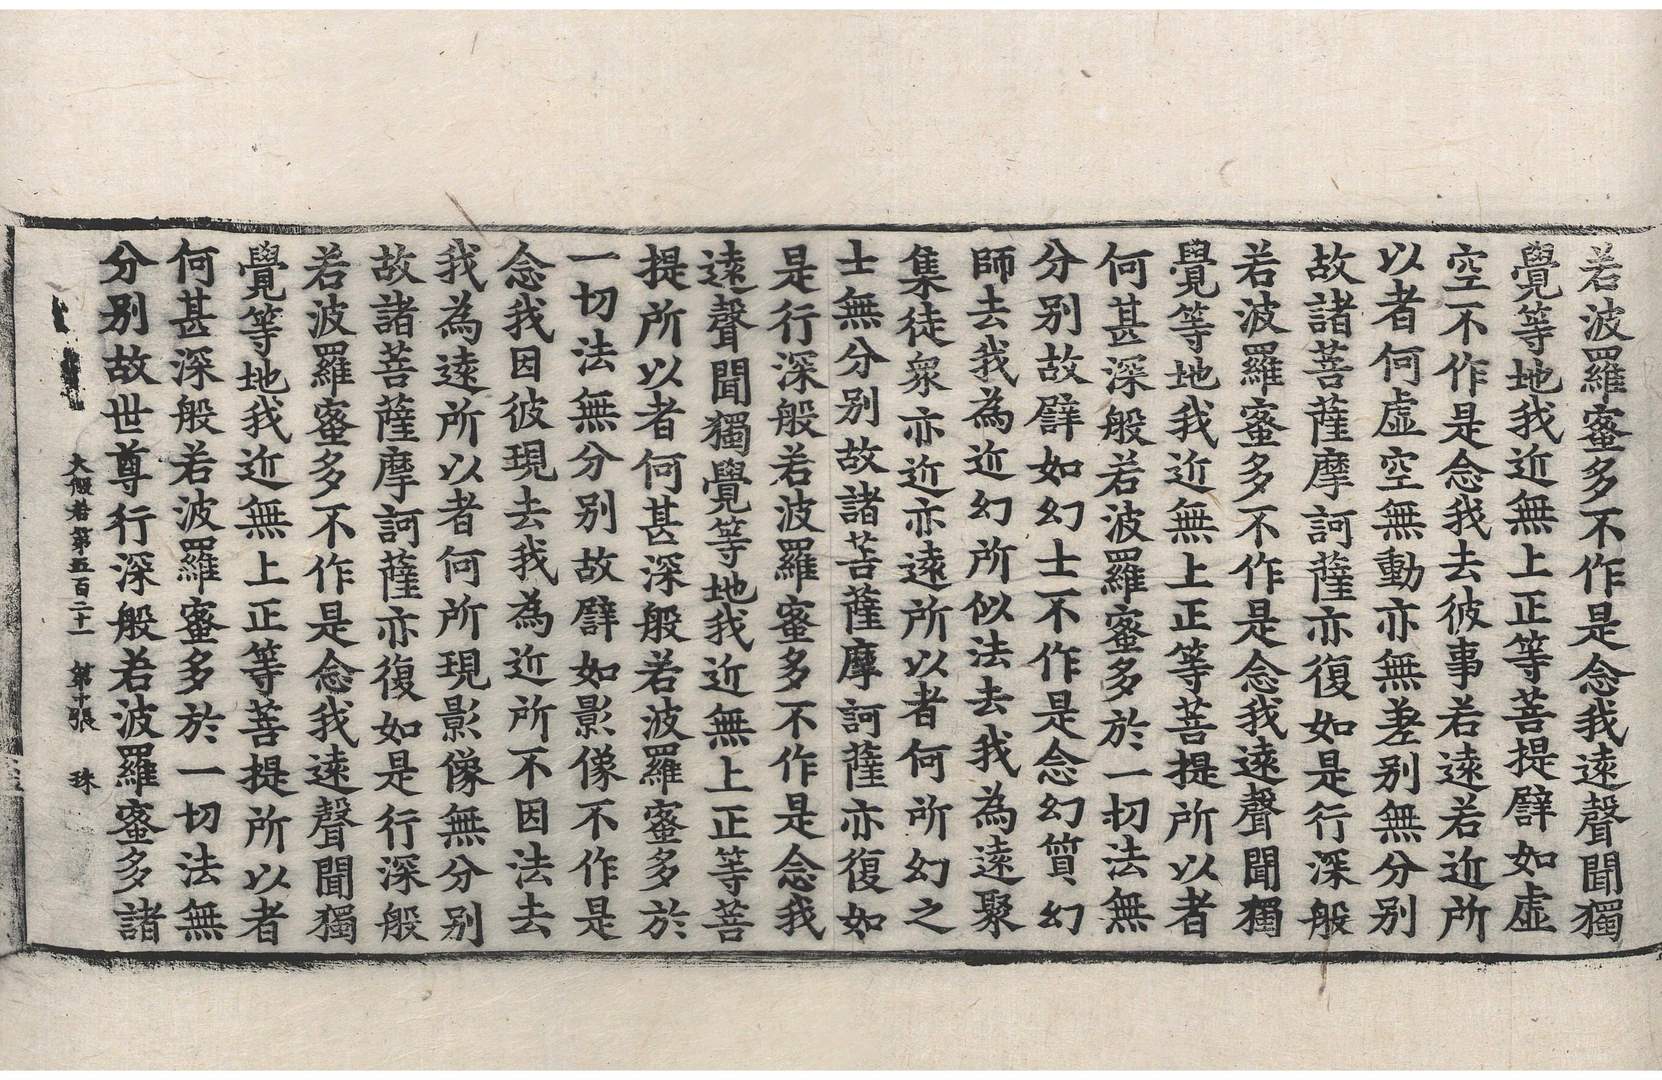 若波羅蜜多不作是念我遠聲聞獨
覺等地我近無上正等菩提譬如虛
空不作是念我去彼事若遠若近所
以者何虛空無動亦無差别無分别
故諸菩薩摩訶薩亦復如是行深般
若波羅蜜多不作是念我遠聲聞獨
覺等地我近無上正等菩提所以者
何甚深般若波羅蜜多於一切法無
分别故譬如幻士不作是念幻質幻
師去我為近幻所似法去我為遠聚
集徒衆亦近亦遠所以者何所幻之
士無分别故諸菩薩摩訶薩亦復如
是行深般若波羅蜜多不作是念我
遠聲聞獨覺等地我近無上正等菩
提所以者何甚深般若波羅蜜多於
一切法無分别故譬如影像不作是
念我因彼現去我為近所不因法去
我為遠所以者何所現影像無分别
故諸菩薩摩訶薩亦復如是行深般
若波羅蜜多不作是念我遠聲聞獨
覺等地我近無上正等菩提所以者
何甚深般若波羅蜜多於一切法無
分别故世尊行深般若波羅蜜多諸
大般若第五百二十一 第十張 珠